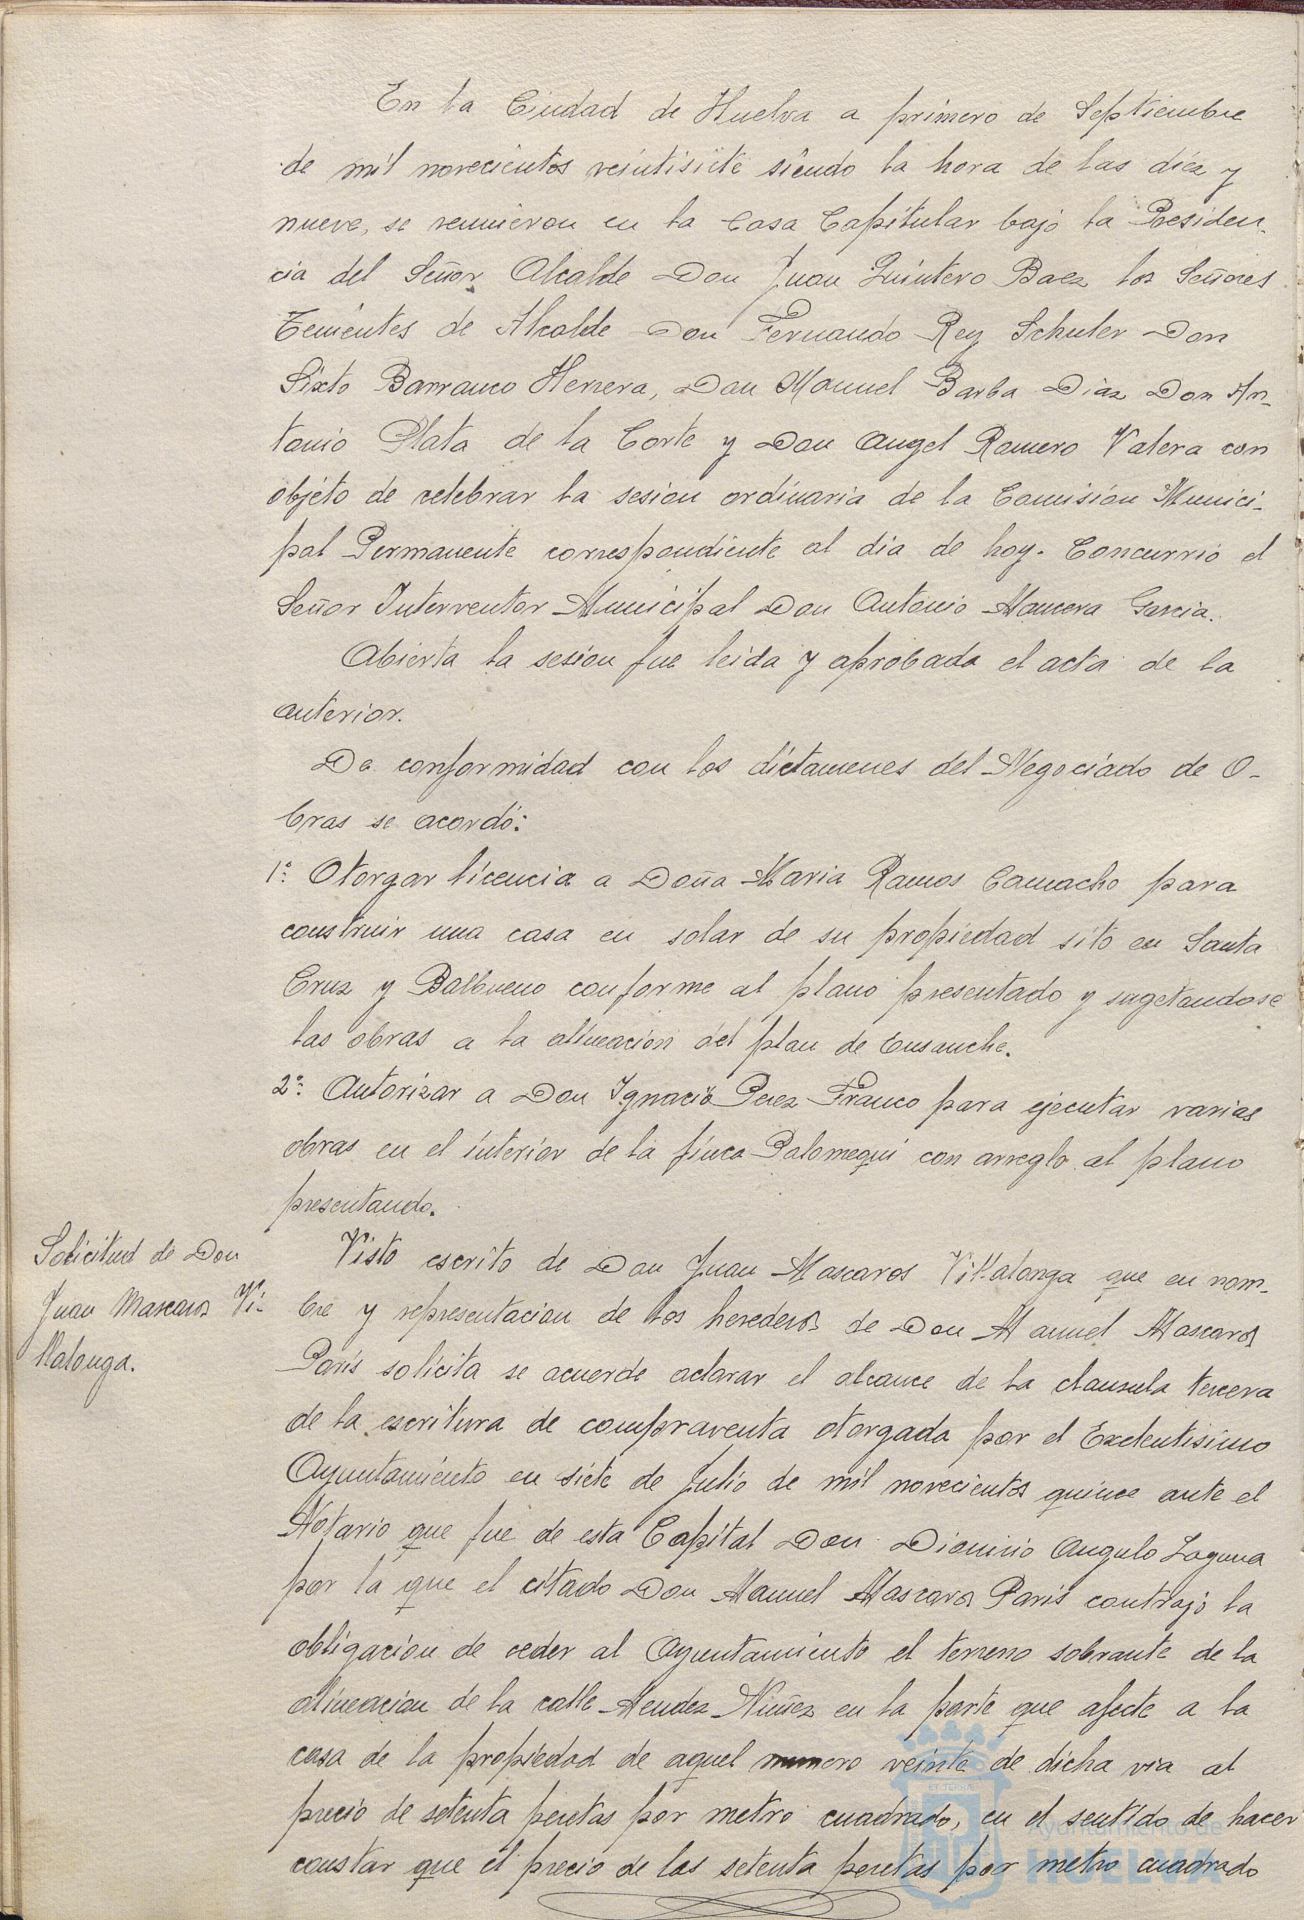 En la Ciudad de Huelva a primero de Septiembre
de mil novecientos veintisiete siendo la hora de las diez y
nueve, se reunieron en la Casa Capitular bajo la Presiden-
cia del Señor Alcalde Don Juan Quintero Baez los Señores
Tenientes de Alcalde Don Fernando Rey Schuler Don
Sixto Barranco Herrera, Don Manuel Barba Diaz Don An-
tonio Plata de la Corte y Don Angel Romero Valera con
objeto de celebrar la sesion ordinaria de la Comisión Munici-
pal Permanente correspondiente al dia de hoy. Concurrió el
Señor Interventor Municipal Don Antonio Mancera Garcia.
Abierta la sesion fue leida y aprobada el acta de la
anterior.
De conformidad con los dictamenes del Negociado de O-
bras se acordó:
1º: Otorgar licencia a Doña Maria Ramos Camacho para
construir una casa en solar de su propiedad sito en Santa
Cruz y Balbueno conforme al plano presentado y sugetandose
las obras a la alineacion del plan de Ensanche.
2º: Autorizar a Don Ignacio Perez Franco para ejecutar varias
obras en el interior de la finca Palomequi con arreglo al plano
presentando.
Solicitud de Don
Juan Mascaros Vi-
llalonga.
Visto escrito de Don Juan Mascaros Villalonga que en nom-
bre y representacion de los herederos de Don Manuel Mascaros
Paris solicita se acuerde aclarar el alcance de la clausula tercera
de la escritura de compraventa otorgada por el Exelentisimo
Ayuntamiento en siete de Julio de mil novecientos quince ante el
Notario que fue de esta Capital Don Dionisio Angulo Laguna
por la que el citado Don Manuel Mascaros Paris contrajo la
obligacion de ceder al Ayuntamiento el terreno sobrante de la
alineacion de la calle Mendez Nuñez en la parte que afecte a la
casa de la propiedad de aquel numero veinte de dicha via al
precio de setenta pesetas por metro cuadrado, en el sentido de hacer
constar que el precio de las setenta pesetas por metro cuadrado
Ayuntamiento de
HUELVA